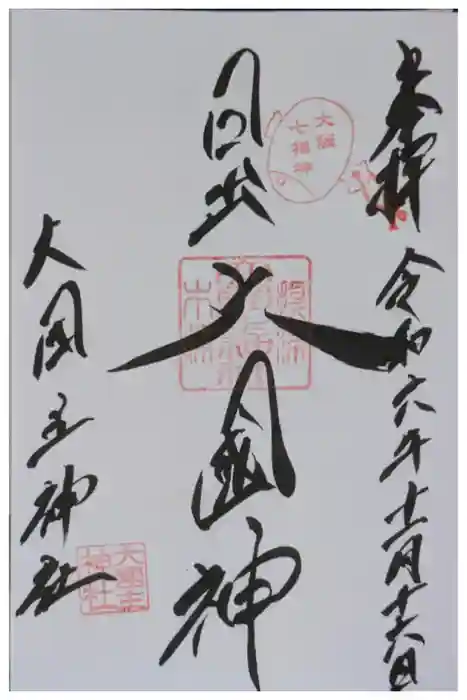 奉拝
令和六年十一月十六日
大阪
七福神
日出大國神
大国主神社
大國主
神社